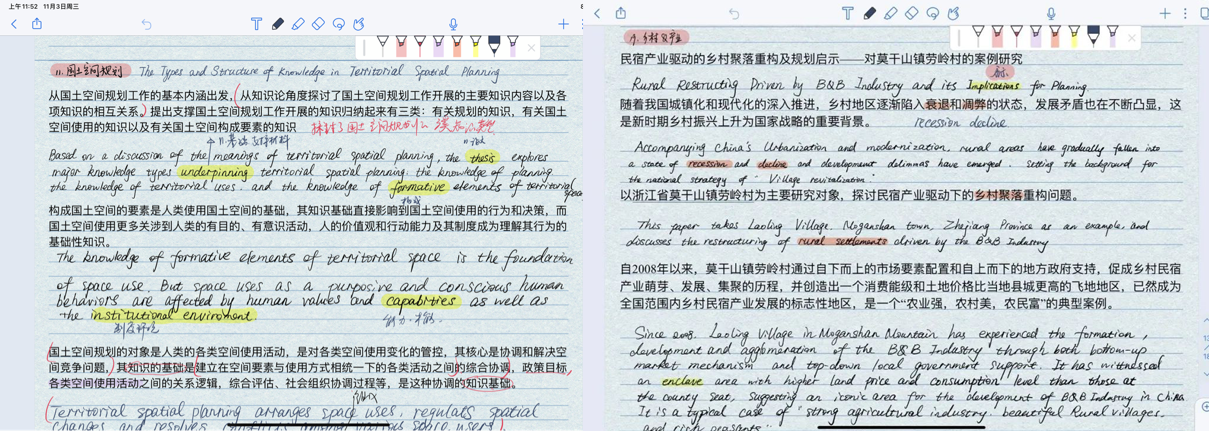 上午11:52 11月3日周三
11.国土空间规划 The Types and Structure of Knowledge in Territorial Spatial Planning
从国土空间规划工作的基本内涵出发,从知识论角度探讨了国土空间规划工作开展的主要知识内容以及各
项知识的相互关系,提出支撑国土空间规划工作开展的知识归纳起来有三类:有关规划的知识,有关国土
空间使用的知识以及有关国土空间构成要素的知识
Based on a discussion of the meanings of territorial spatial planning, the thesis explores
major knowledge types underpinning territorial spatial planning. the knowledge of planning
the knowledge of territorial uses. and the knowledge of formative elements of territorial
构成
构成国土空间的要素是人类使用国土空间的基础,其知识基础直接影响到国土空间使用的行为和决策,而
国土空间使用更多关涉到人类的有目的、有意识活动,人的价值观和行动能力及其制度成为理解其行为的
基础性知识。
The knowledge of formative elements of territorial space is the foundation
of space use. But space uses as a purposive and conscious human
behaviors are affected by human values and capabities as well as
the institutional enviroment.
能力.才能.
国土空间规划的对象是人类的各类空间使用活动,是对各类空间使用变化的管控,其核心是协调和解决空
间竞争问题,其知识的基础是建立在空间要素与使用方式相统一下的各类活动之间的综合协调,政策目标,
各类空间使用活动之间的关系逻辑,综合评估、社会组织协调过程等,是这种协调的知识基础。
Territorial spatial planning arranges space uses, regulats spatial
changes and resolves
9.乡村及产业
民宿产业驱动的乡村聚落重构及规划启示——对莫干山镇劳岭村的案例研究
Rural Restructing Driven by B&B Industry and its Implications for Planning
随着我国城镇化和现代化的深入推进,乡村地区逐渐陷入衰退和凋弊的状态,发展矛盾也在不断凸显,这
是新时期乡村振兴上升为国家战略的重要背景。
recession decline
Accompanying China's Urbanization and modernization, rural areas have gradually fallen into
a state of recession and decline and development dilimmas have emerged. setting the background for
the national strategy of "Village revitalization"
以浙江省莫干山镇劳岭村为主要研究对象,探讨民宿产业驱动下的乡村聚落重构问题。
This paper takes Laoling Village. Moganshan town, Zhejiang Province as an example, and
discusses the restructuring of rural settlements driven by the B&B Industry
自2008年以来,莫干山镇劳岭村通过自下而上的市场要素配置和自上而下的地方政府支持,促成乡村民宿
产业萌芽、发展、集聚的历程,并创造出一个消费能级和土地价格比当地县城更高的飞地地区,已然成为
全国范围内乡村民宿产业发展的标志性地区,是一个“农业强,农村美,农民富”的典型案例。
Since 2008. Laoling Village in Moganshan Mountain has experienced the formation,
development and agglomeration of the B&B Industry through both bottom-up
market mechanism and top-down local government support. It has witnessed
an enclave area with higher land price and consumption level than those at
the county seat, Suggesting an iconic area for the development of B&B Industry in China
It is a typical case of "strong agricultural industry. beautiful Rural villages.
and rich peasants"